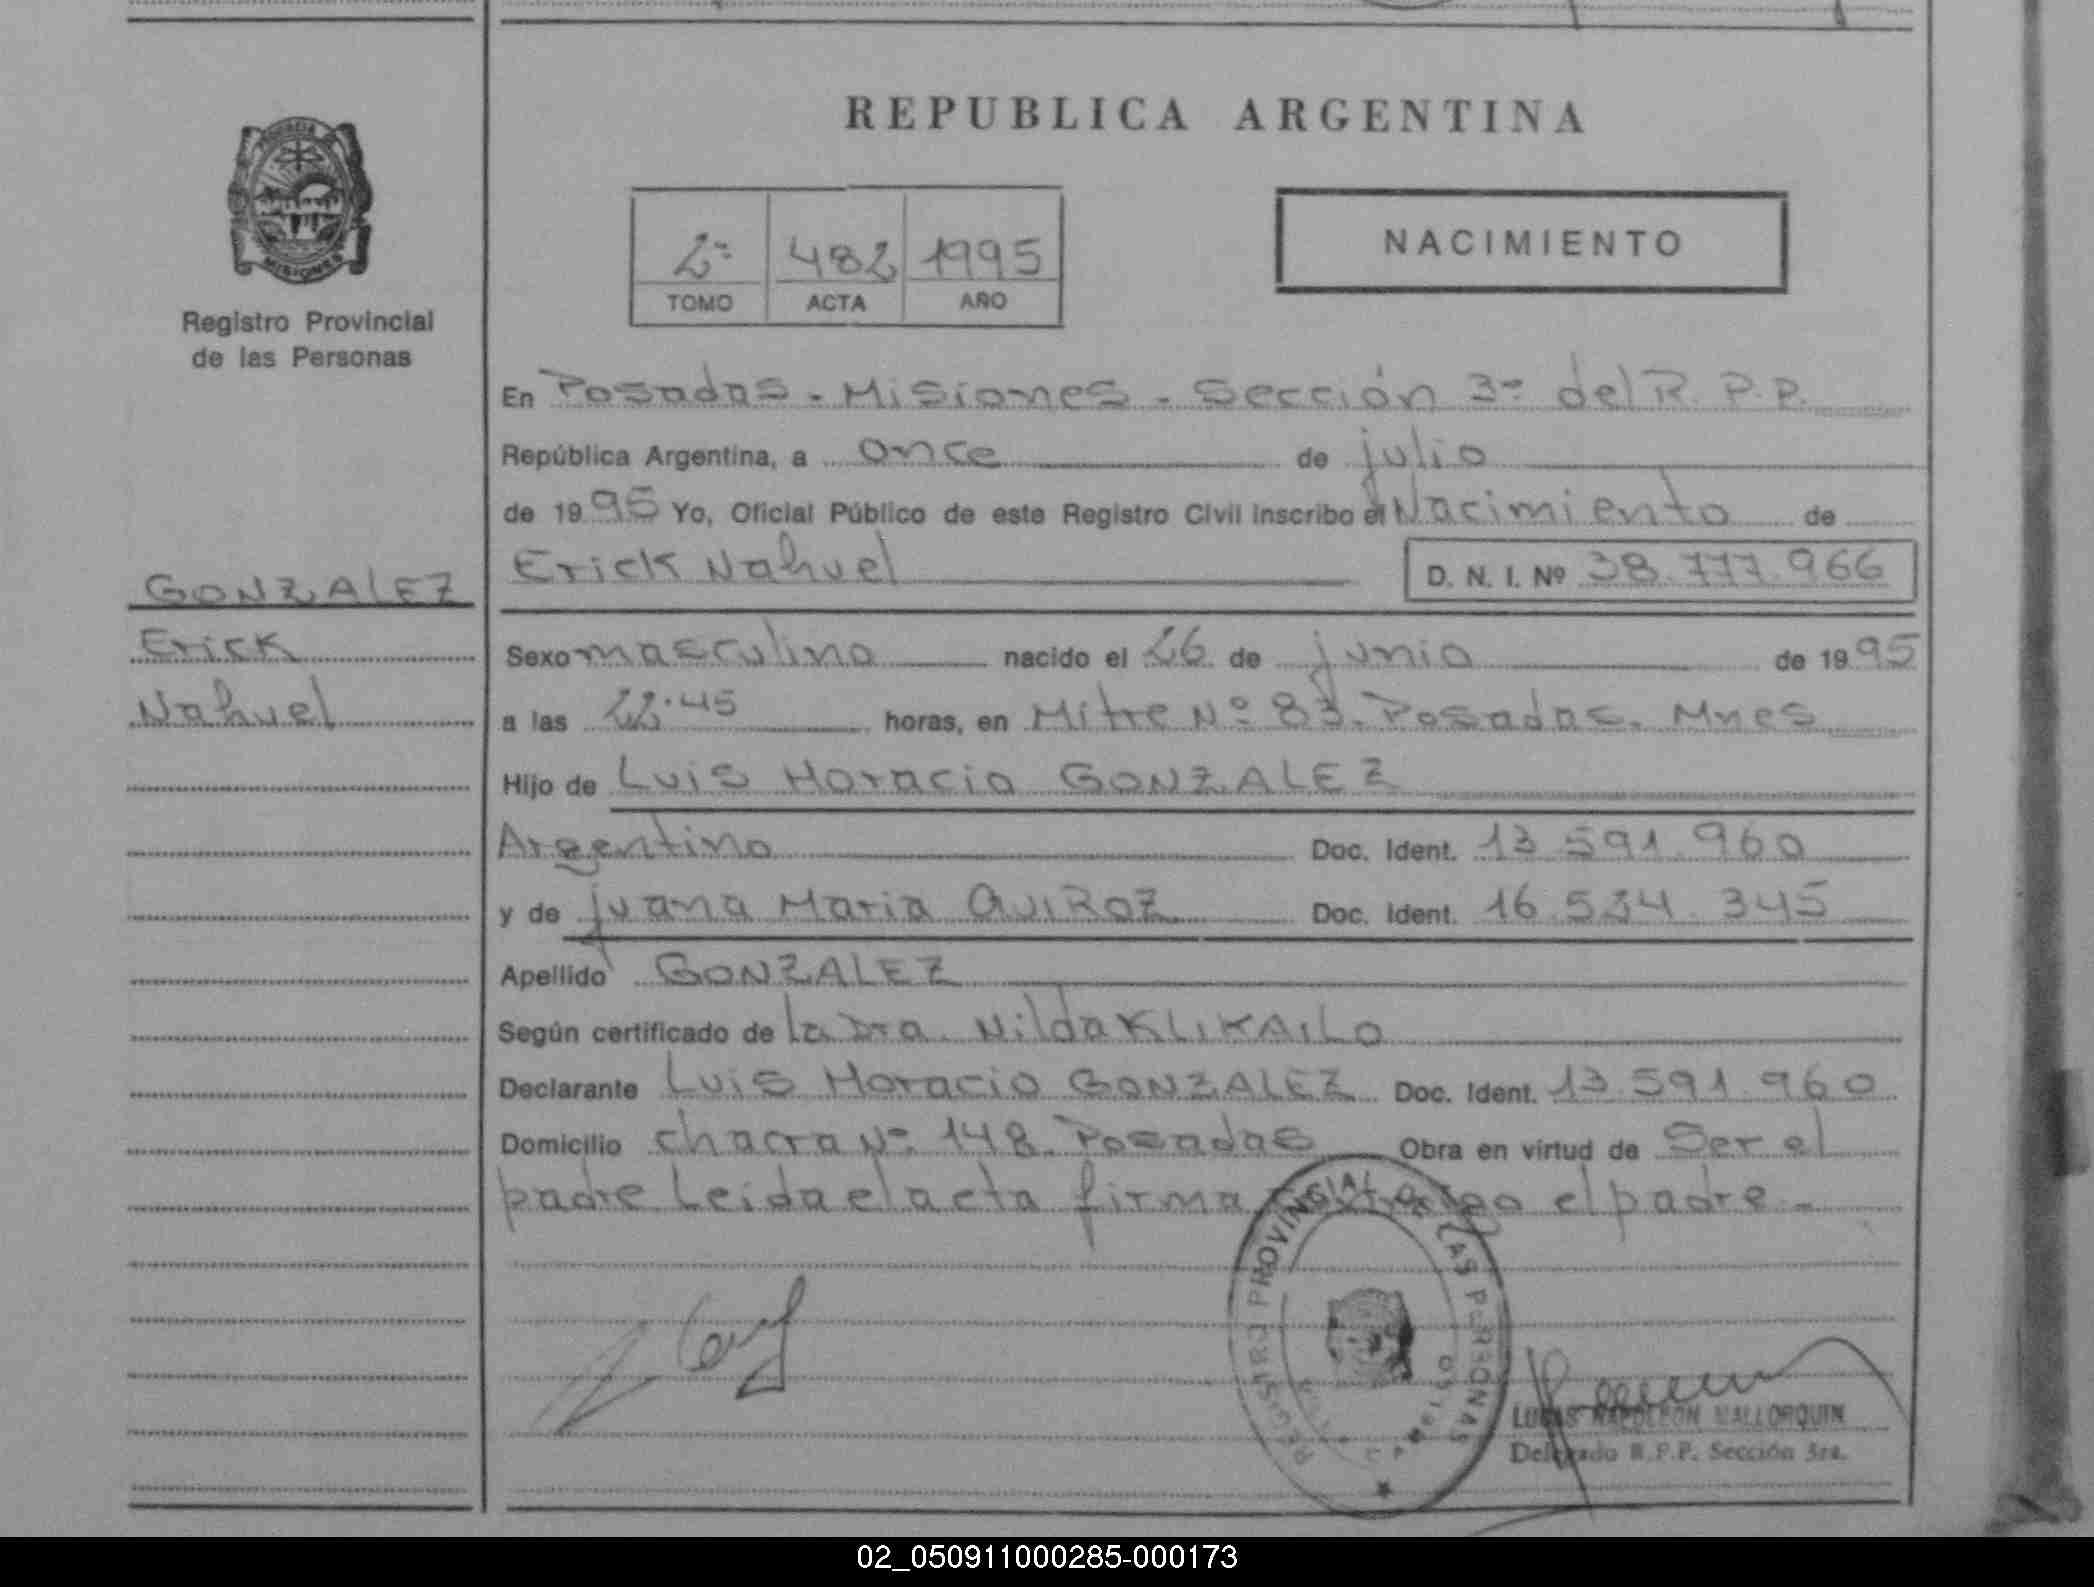 REPUBLICA ARGENTINA
PROVINCIA
MISIONES
Registro Provincial
de las Personas
2º 482 1995
TOMO ACTA AÑO
NACIMIENTO
En Posadas - Misiones - Sección 3º del R. P. P.
República Argentina, a once de julio
de 1995 Yo, Oficial Público de este Registro Civil inscribo el Nacimiento de
Erick Nahuel D. N. I. Nº 38.777.966
GONZALEZ
Erick
Nahuel
Sexo masculino nacido el 26 de junio de 1995
a las 22.45 horas, en Mitre Nº 83. Posadas. Mnes
Hijo de Luis Horacio GONZALEZ
Argentino Doc. Ident. 13.591.960
y de Juana Maria QUIROZ Doc. Ident. 16.534.345
Apellido GONZALEZ
Según certificado de la Dra. Nilda KLIKAILO
Declarante Luis Horacio GONZALEZ Doc. Ident. 13.591.960
Domicilio chacra Nº 148. Posadas Obra en virtud de Ser el
padre Leida el acta firma conmigo el padre.-
REGISTRO PROVINCIAL DE LAS PERSONAS
LUCAS NAPOLEON MALLORQUIN
Delegado R.P.P. Sección 3ra.
02_050911000285-000173